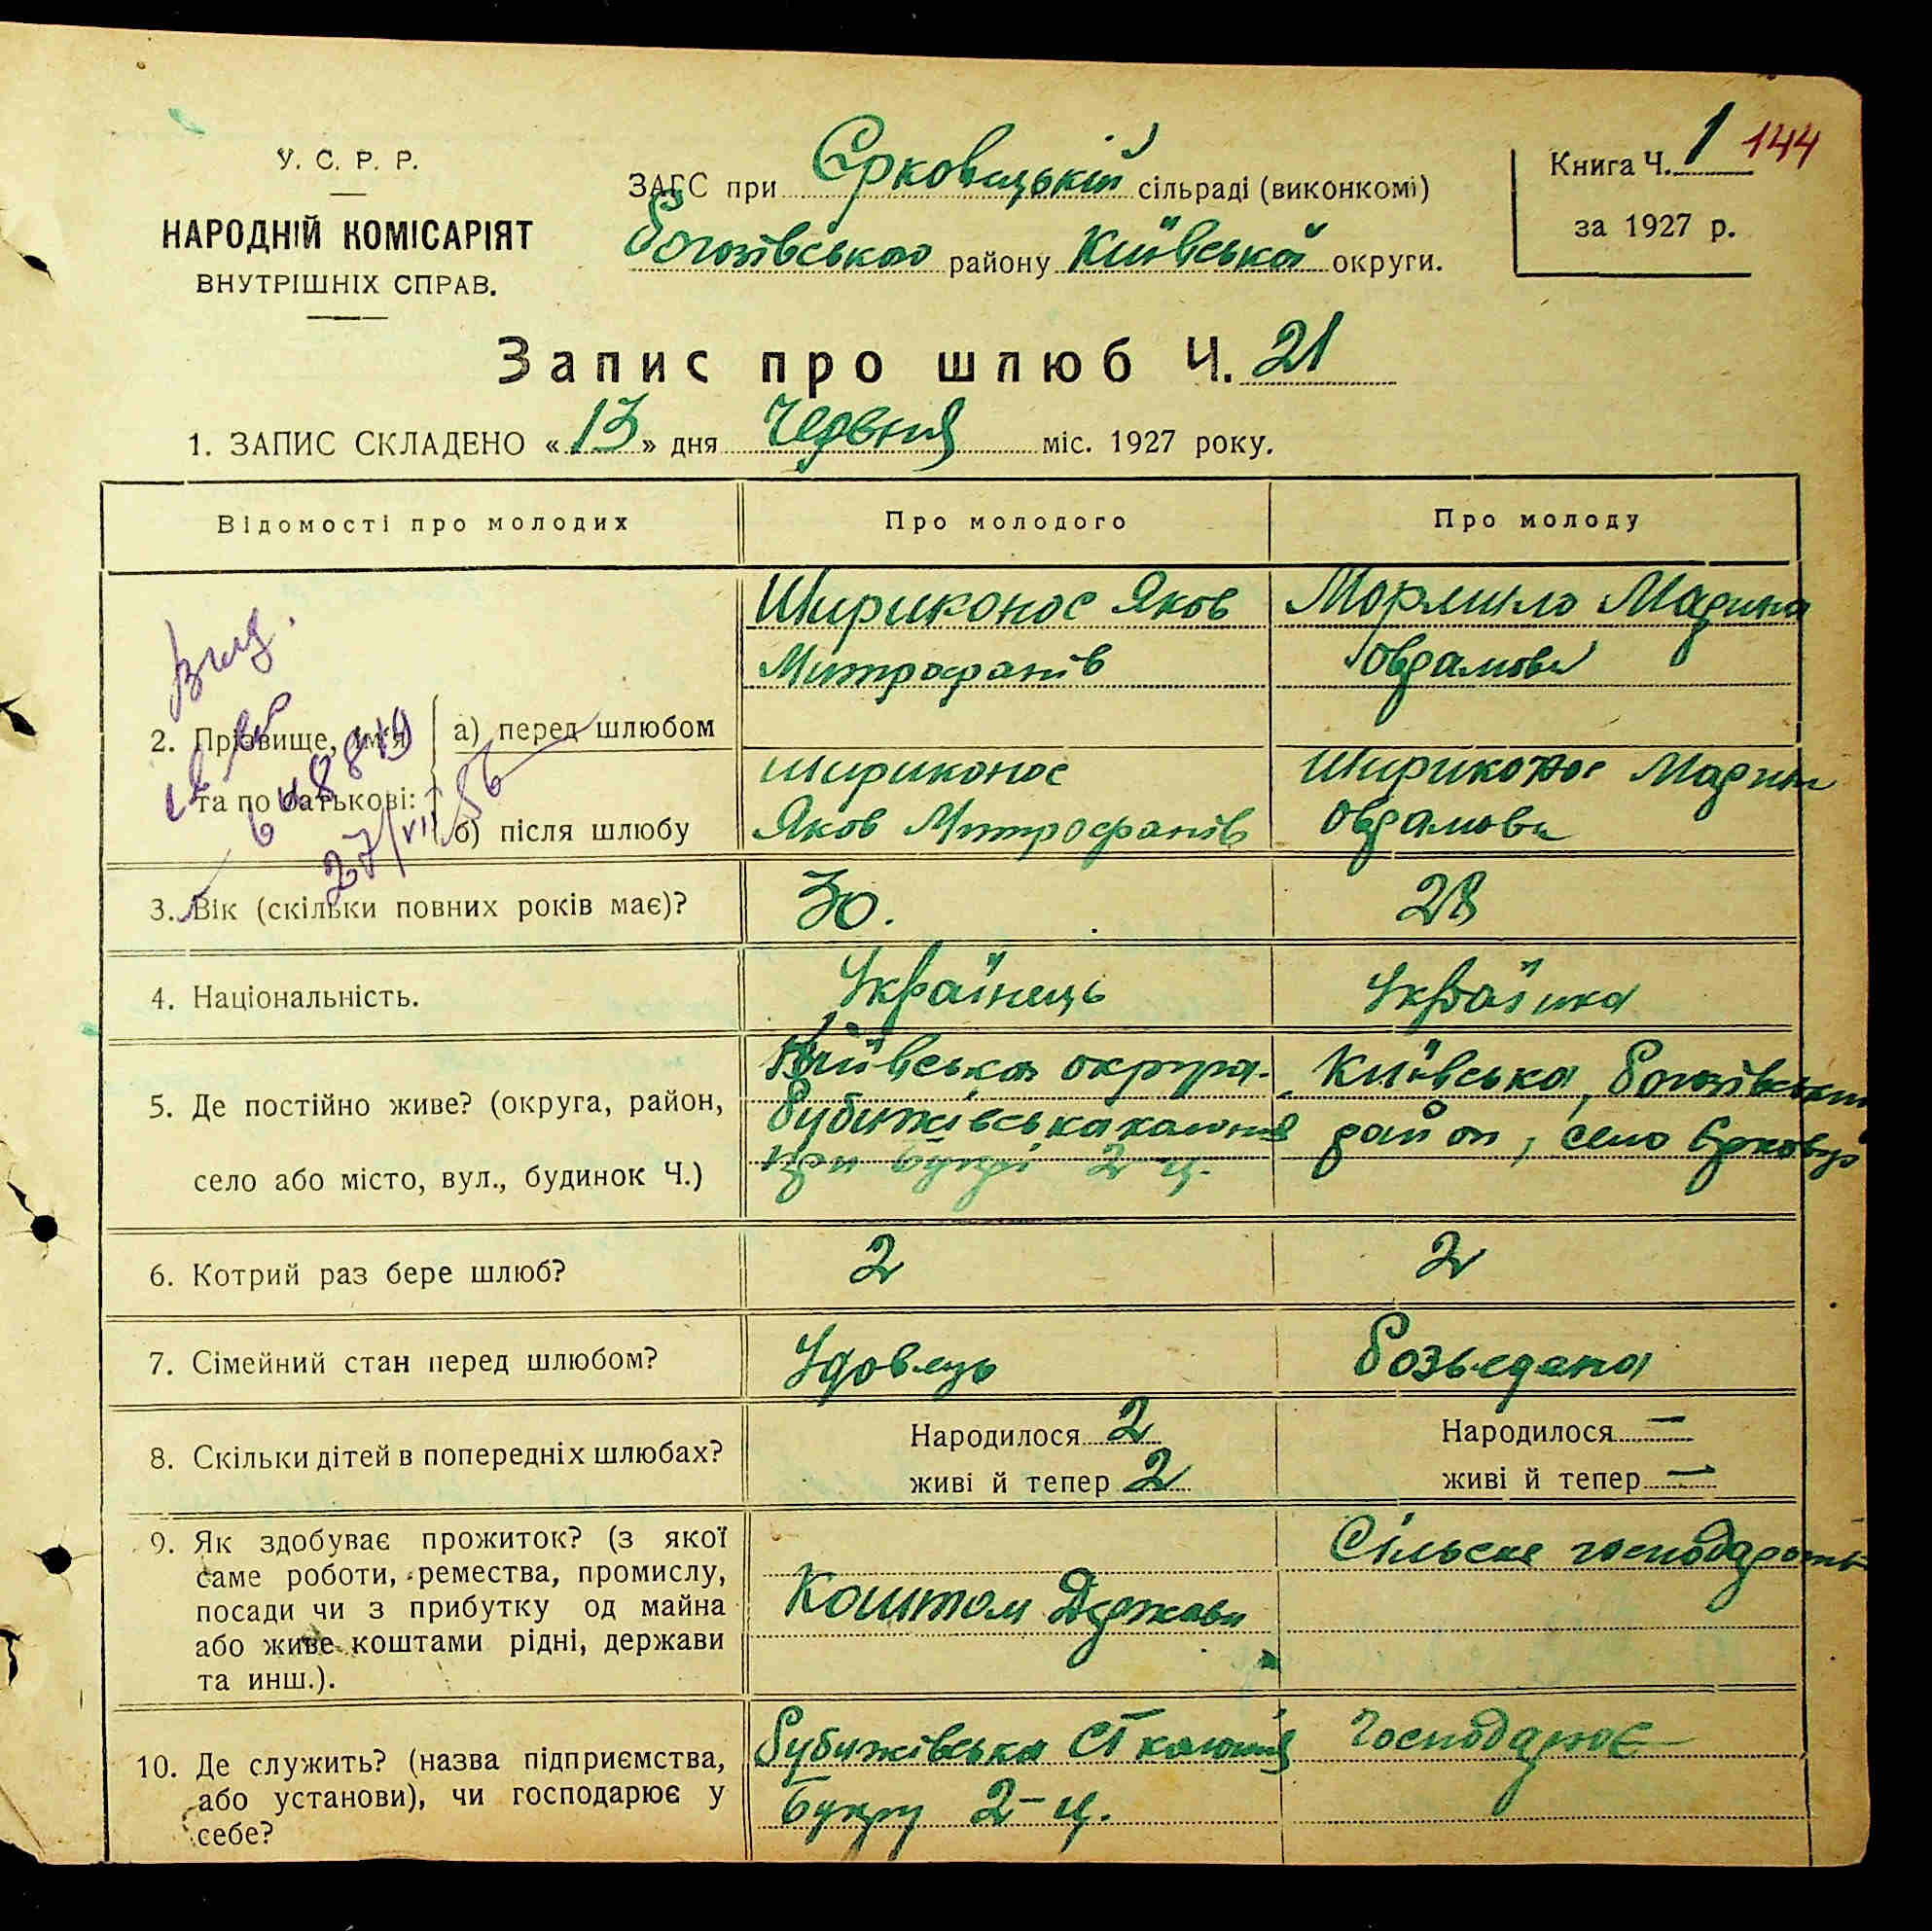 У. С. Р. Р.
НАРОДНІЙ КОМІСАРІЯТ
ВНУТРІШНІХ СПРАВ.
ЗАГС при Єрковецькій сільраді (виконкомі)
Рогозівського району Київської округи.
Книга Ч. 1 144
за 1927 р.
Запис про шлюб Ч. 21
1. ЗАПИС СКЛАДЕНО «13» дня Червня міс. 1927 року.
Відомості про молодих
Про молодого
Про молоду
2. Прізвище, ім'я та по батькові:
а) перед шлюбом
Шириконос Яков
Митрофанів
Мормило Марина
Оврамова
б) після шлюбу
Шириконос
Яков Митрофанів
Шириконос Марина
Оврамова
27/VII 56
3. Вік (скільки повних років має)?
30.
28
4. Національність.
Українець
Українка
5. Де постійно живе? (округа, район,
село або місто, вул., будинок Ч.)
Київська округа.
Рубижівська колонія
при 2 ц.
Київська, Рогозівський
район, село Єрковці
6. Котрий раз бере шлюб?
2
2
7. Сімейний стан перед шлюбом?
Удовець
Розведена
8. Скільки дітей в попередніх шлюбах?
Народилося 2
живі й тепер 2
Народилося —
живі й тепер —
9. Як здобуває прожиток? (з якої
саме роботи, ремества, промислу,
посади чи з прибутку од майна
або живе коштами рідні, держави
та инш.).
Коштом Держави
Сільске господарство
10. Де служить? (назва підприємства,
або установи), чи господарює у
себе?
Рубижівська колонія
2-ц.
Господарює